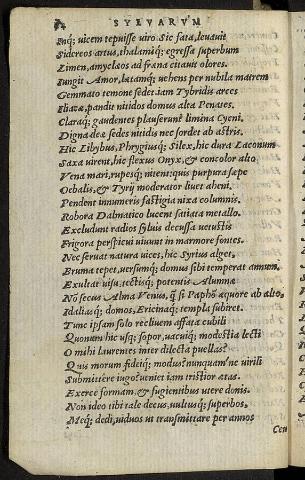 84 SYLVARVM
Inq; uicem tepuisse uiro. Sic fata, leuauit
Sidereos artus, thalamiq; egressa superbum
Limen, amyclæos ad frana citauit olores.
Iungit Amor, lætamq; uehens per nubila matrem
Gemmato temone sedet. iam Tybridis arces
Iliacæ, pandit nitidos domus alta Penates.
Claraq; gaudentes plauserunt limina Cycni,
Digna deæ sedes nitidis nec sordet ab astris.
Hic Libybus, Phrygiusq; Silex, hic dura Laconum
Saxa uirent, hic flexus Onyx, & concolor alto
Vena mari, rupesq; nitent: quis purpura sæpe
Oebalis, & Tyrij moderator liuet aheni.
Pendent innumeris fastigia nixa columnis.
Robora Dalmatico lucent satiata metallo.
Excludunt radios syluis decussa uetustis
Frigora perspicui uiuunt in marmore fontes.
Nec seruat natura uices, hic Syrius alget,
Bruma tepet, uersumq; domus sibi temperat annum.
Exultat uisu, tectisq; potentis Alumnæ
Nõ secus Alma Venus, q̃ si Paphõ æquore ab alto,
Idaliasq; domos, Ericinaq; templa subiret.
Tunc ipsam solo recliuem affata cubili
Quonam hic usq; sopor, uacuiq; modestia lecti
O mihi laurentes inter dilecta puellas?
Quis morum fideiq; modus? nunquam'ne uirili
Submittere iugo? ueniet iam tristior ætas.
Exerce formam, & fugientibus utere donis.
Non ideo tibi tale decus, uultusq; superbos,
Meq; dedi, uiduos ut transmittere per annos
Ceu